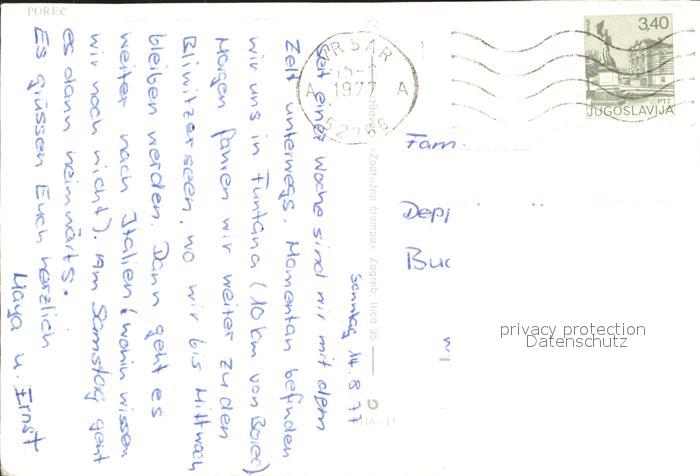 POREČ
Sonntag, 14.8.77
Seit einer Woche sind wir mit dem
Zelt unterwegs. Momentan befinden
wir uns in Funtana (10 km von Poreč)
Morgen fahren wir weiter zu den
Blitwitzerseen, wo wir bis Mittwoch
bleiben werden. Dann geht es
weiter nach Italien (wohin wissen
wir noch nicht). Am Samstag geht
es dann heimwärts.
Es grüssen Euch herzlich
Maya u. Ernst
Zadružna štampa, Zagreb, Ilica 35
VRSAR
1977
A A
52366
3,40
PTT
JUGOSLAVIJA
Fam.
Depp
Buc
privacy protection
Datenschutz